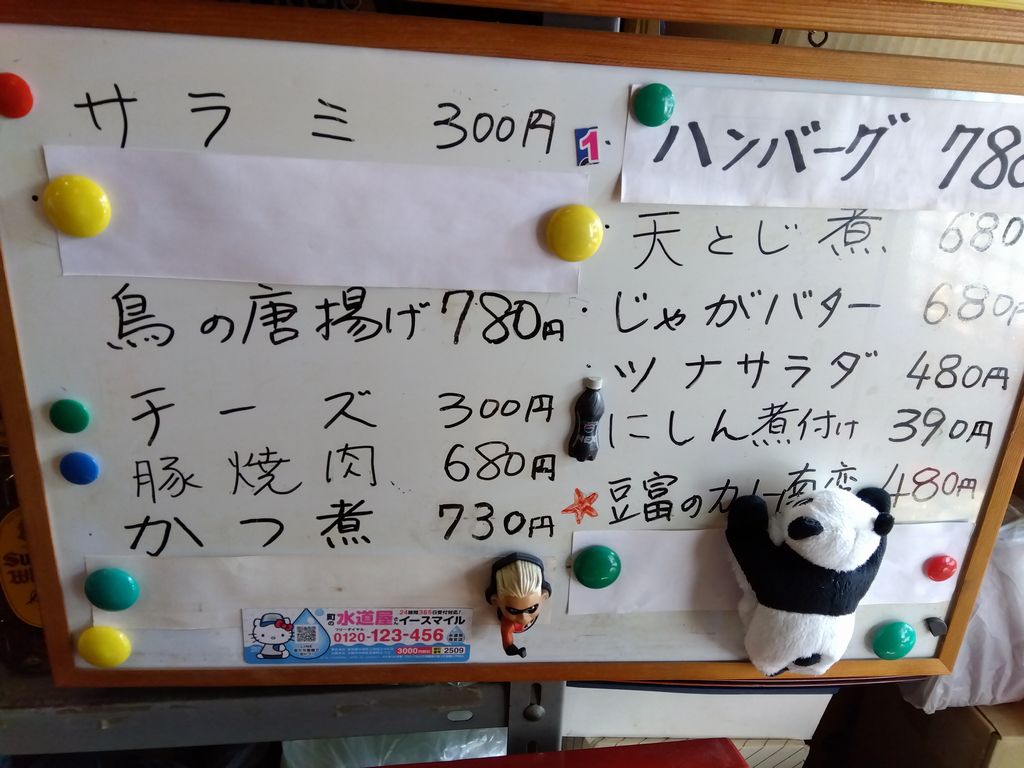 サラミ 300円
鳥の唐揚げ 780円
チーズ 300円
豚焼肉 680円
かつ煮 730円
1
ハンバーグ 780
天とじ煮 680
じゃがバター 680円
ツナサラダ 480円
にしん煮付け 390円
豆富のカレー南蛮 480円
24時間365日受付対応!
町の水道屋さんイースマイル
フリーダイヤル
0120-123-456
LINE
3000円
2509